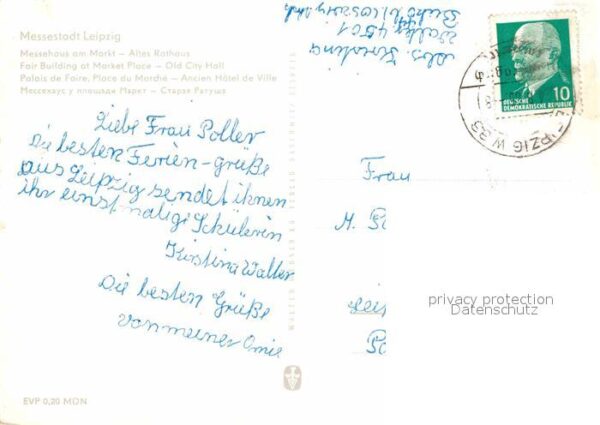 Messestadt Leipzig
Messehaus am Markt — Altes Rathaus
Fair Building at Market Place — Old City Hall
Palais de Faire, Place du Marche — Ancien Hôtel de Ville
Мессехаус у площади Маркт — Старая Ратуша
Abs.
4501
DEUTSCHE
DEMOKRATISCHE REPUBLIK
10
LEIPZIG W 33
Liebe Frau Poller
Die besten Ferien-grüße
aus Leipzig sendet ihnen
ihr einstmalige Schülerin
Kirstina Walter
Die besten Grüße
von meiner Omie
Frau
M. Po
Leip
privacy protection
Datenschutz
EVP 0,20 MDN